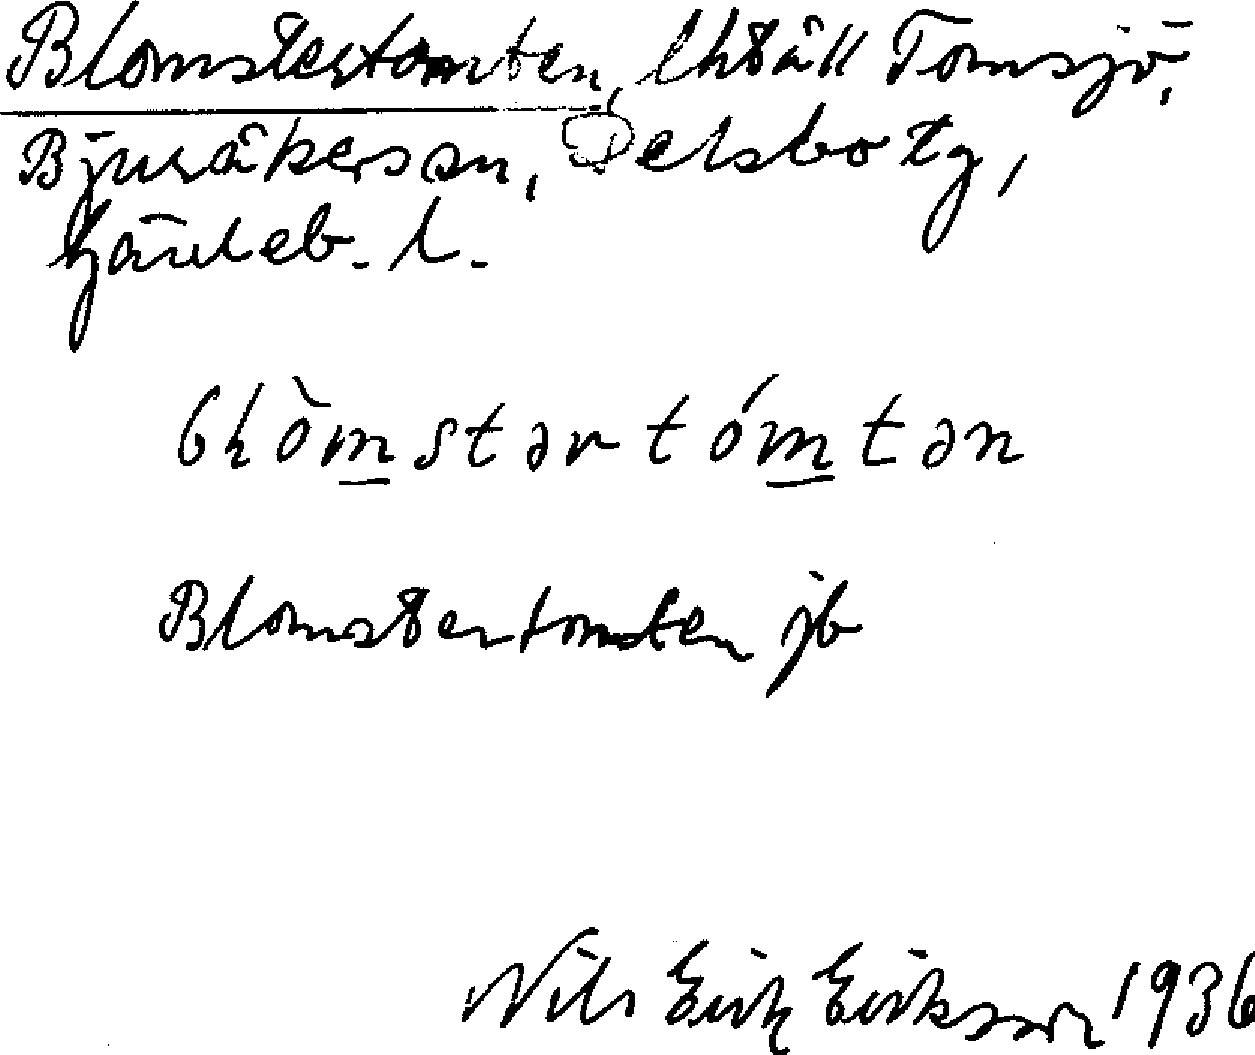 Blomstertomten, lht åk Tomsjö,
Bjuråkers sn, Delsbo tg,
Gävleb. l.
bɬòmstərtómtən
Blomstertomten jb
Nils Erik Eriksson 1936